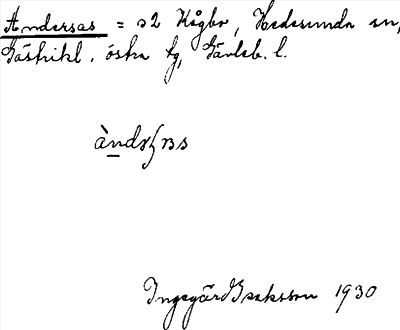 Andersas = a2 Kågbo, Hedesunda sn,
Gästrikl. östra tg, Gävleb. l.
Ingegärd Isaksson 1930